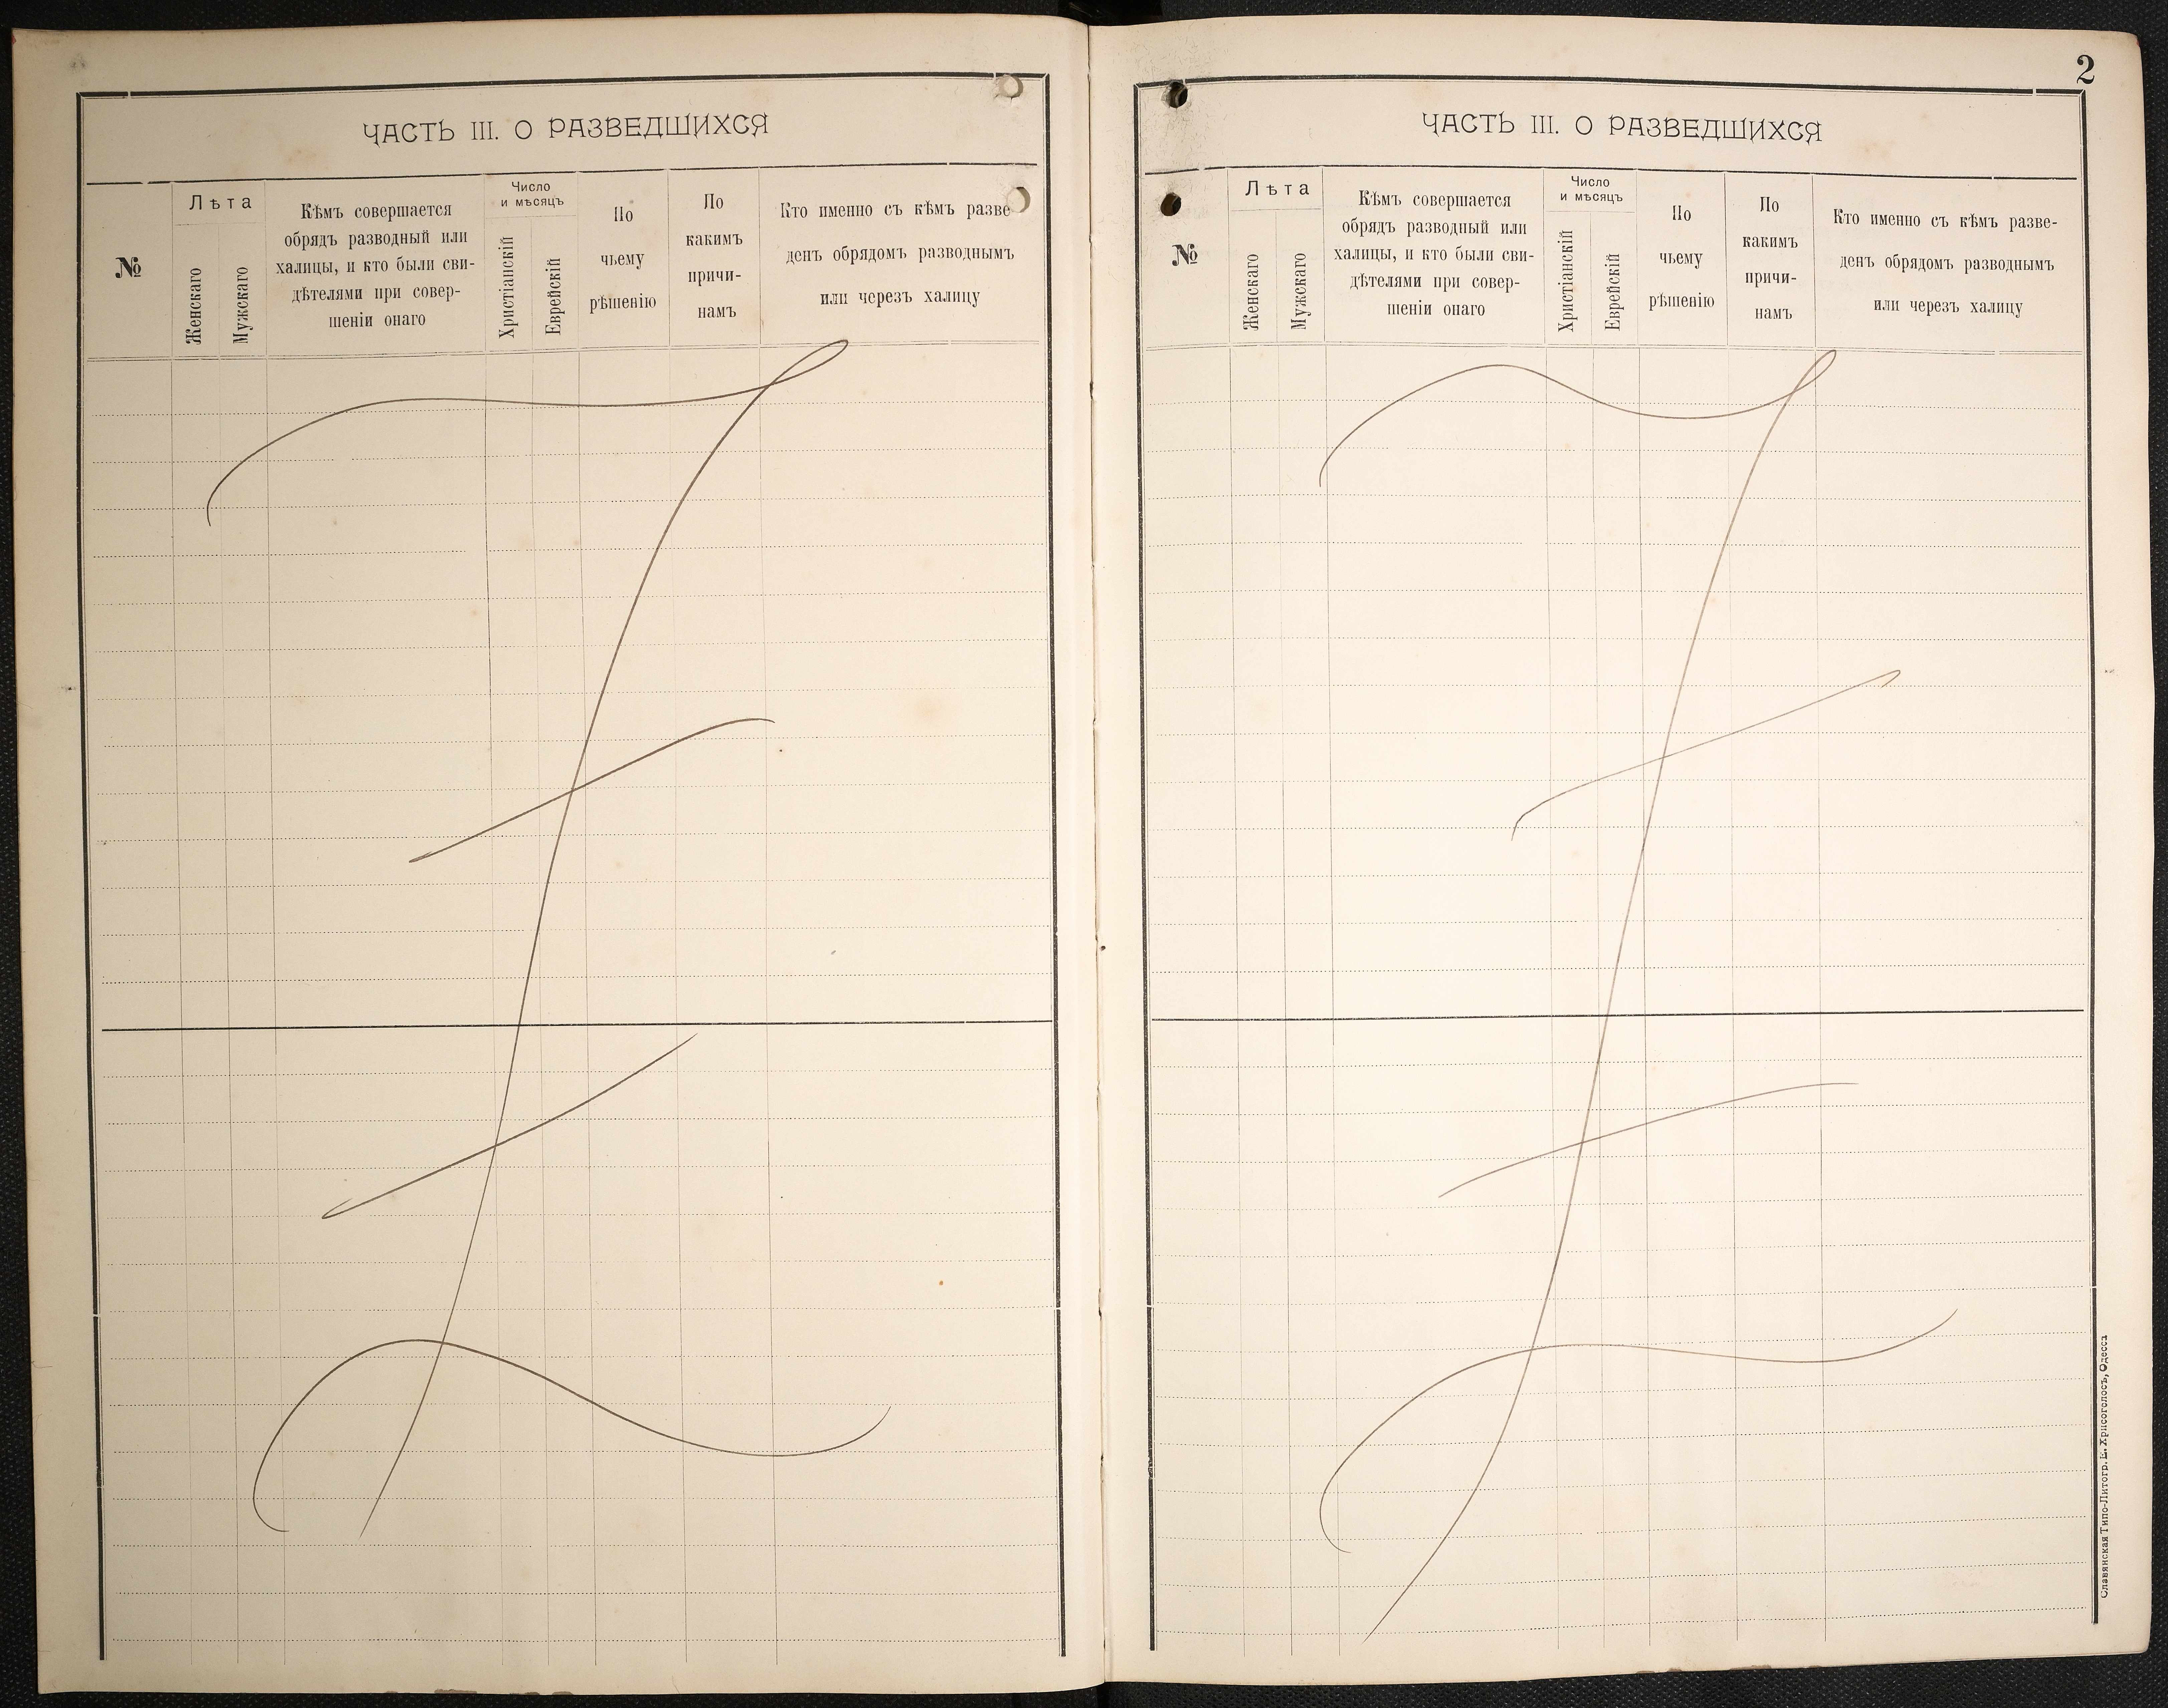 ЧАСТЬ III. О РАЗВЕДШИХСЯ
№
Лѣта
Женскаго
Мужскаго
Кѣмъ совершается
обрядъ разводный или
халицы, и кто были сви-
дѣтелями при совер-
шеніи онаго
Число
и мѣсяцъ
Христіанскій
Еврейскій
По
чьему
рѣшенію
По
какимъ
причи-
намъ
Кто именно съ кѣмъ разве
денъ обрядомъ разводнымъ
или черезъ халицу
2
ЧАСТЬ III. О РАЗВЕДШИХСЯ
№
Лѣта
Женскаго
Мужскаго
Кѣмъ совершается
обрядъ разводный или
халицы, и кто были сви-
дѣтелями при совер-
шеніи онаго
Число
и мѣсяцъ
Христіанскій
Еврейскій
По
чьему
рѣшенію
По
какимъ
причи-
намъ
Кто именно съ кѣмъ разве-
денъ обрядомъ разводнымъ
или черезъ халицу
Славянская Типо-Литогр. Е. Хрисогелосъ, Одесса